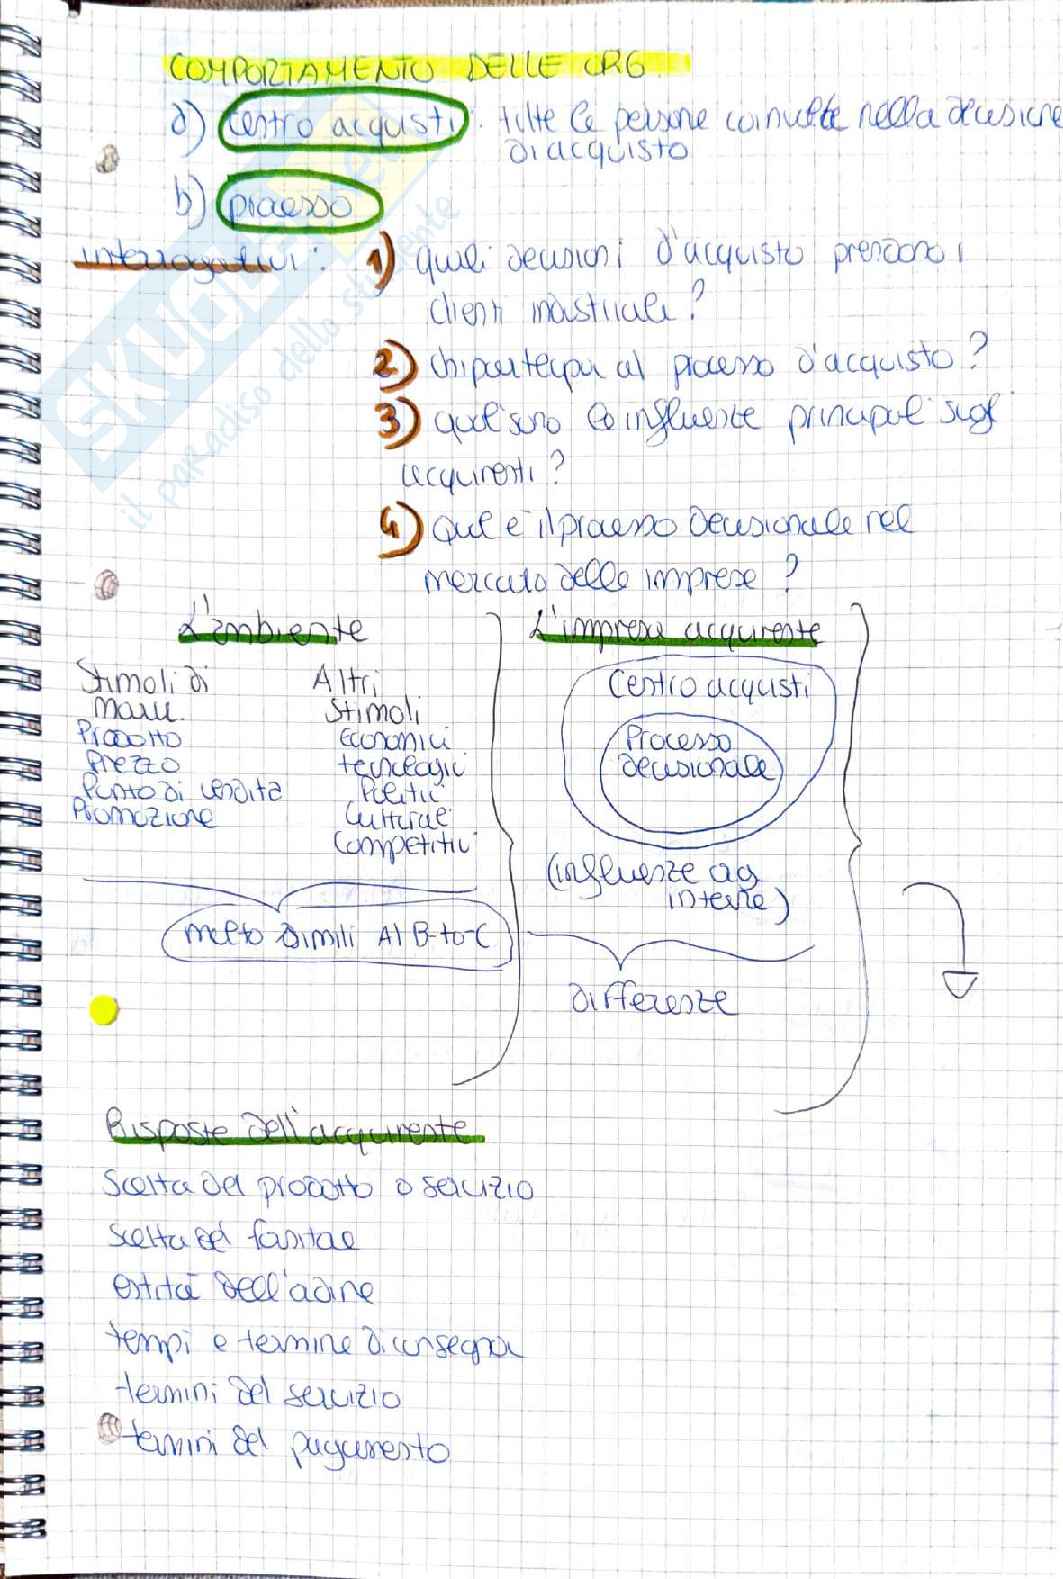 COMPORTAMENTO DELLE ORG.
a) centro acquisti: tutte le persone coinvolte nella decisione
di acquisto
b) processo
interrogativi: 1) quali decisioni d'acquisto prendono i
clienti industriali?
2) chi partecipa al processo d'acquisto?
3) quali sono le influenze principali sugli
acquirenti?
4) qual è il processo decisionale nel
mercato delle imprese?
L'ambiente
Stimoli di
mark.
Prodotto
Prezzo
Punto di vendita
Promozione
Altri
Stimoli
Economici
tecnologici
Politici
Culturali
Competitivi
molto simili Al B-to-C
L'impresa acquirente
Centro acquisti
Processo
decisionale
(influenze og
interne)
differenze
Risposte dell'acquirente
Scelta del prodotto o servizio
scelta del fornitore
entità dell'ordine
tempi e termine di consegna
termini del servizio
termini del pagamento
SKUOLA.net
il paradiso dello studente